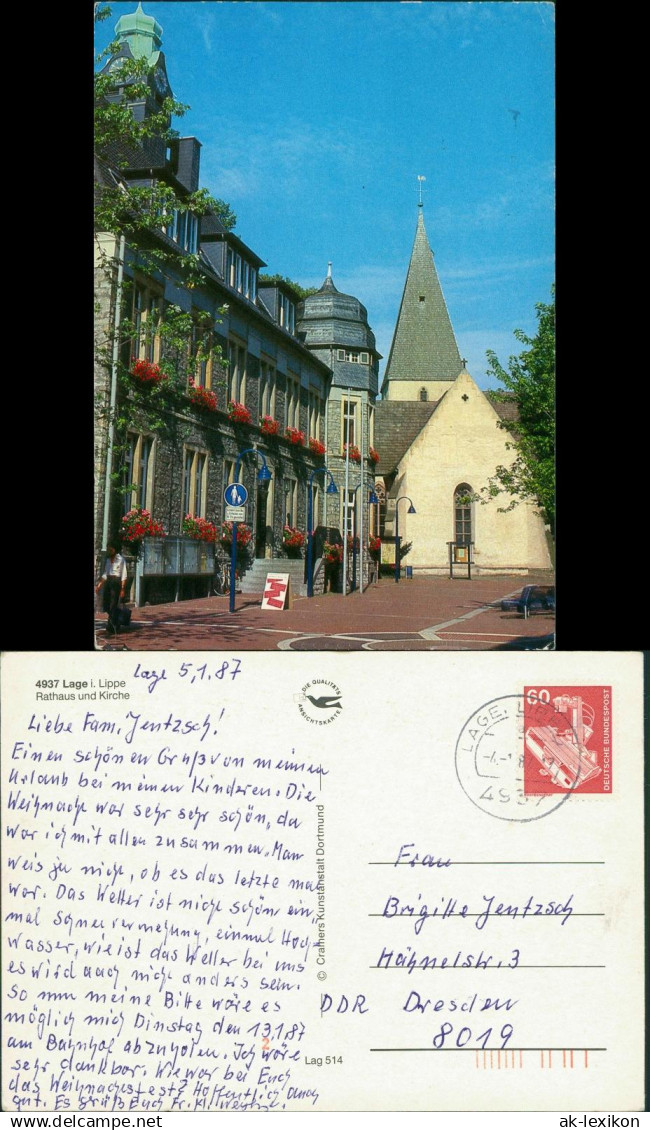 4937 Lage i. Lippe
Rathaus und Kirche
Lage 5,1.87
DIE QUALITÄTS
ANSICHTSKARTE
60
DEUTSCHE BUNDESPOST
LAGE, LIPPE
4937
Liebe Fam. Jentzsch!
Einen schönen Gruß von meinen
Urlaub bei meinen Kinderen. Die
Weihnacht war sehr sehr schön, da
war ich mit allen zusammen. Man
weis ja nicht, ob es das letzte mal
war. Das Wetter ist nicht schön ein,
mal Schneeverwehung, einmal Hoch,
wasser, wie ist das Wetter bei uns
es wird auch nicht anders sein.
So nun meine Bitte wäre es
möglich mich Dinstag den 13.1.87
am Bahnhof abzuholen. Ich wäre
sehr dankbar. Wie war bei Euch
das Weihnachtsfest? Hoffentlich auch
gut. Es grüßt Euch Fr. Kl.
© Cramers Kunstanstalt Dortmund
Frau
Brigitte Jentzsch
Hähnelstr. 3
DDR Dresden
8019
2
Lag 514
delcampe.net
ak-lexikon